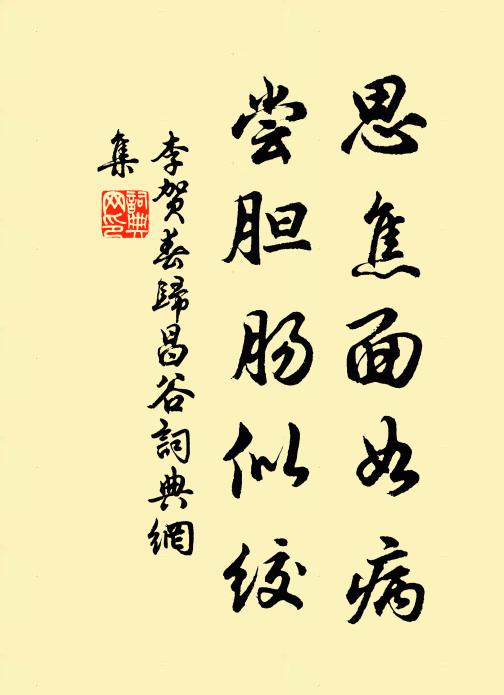 思焦面如病
尝胆肠似绞
李贺春歸昌谷詞典網
集
詞典
网印